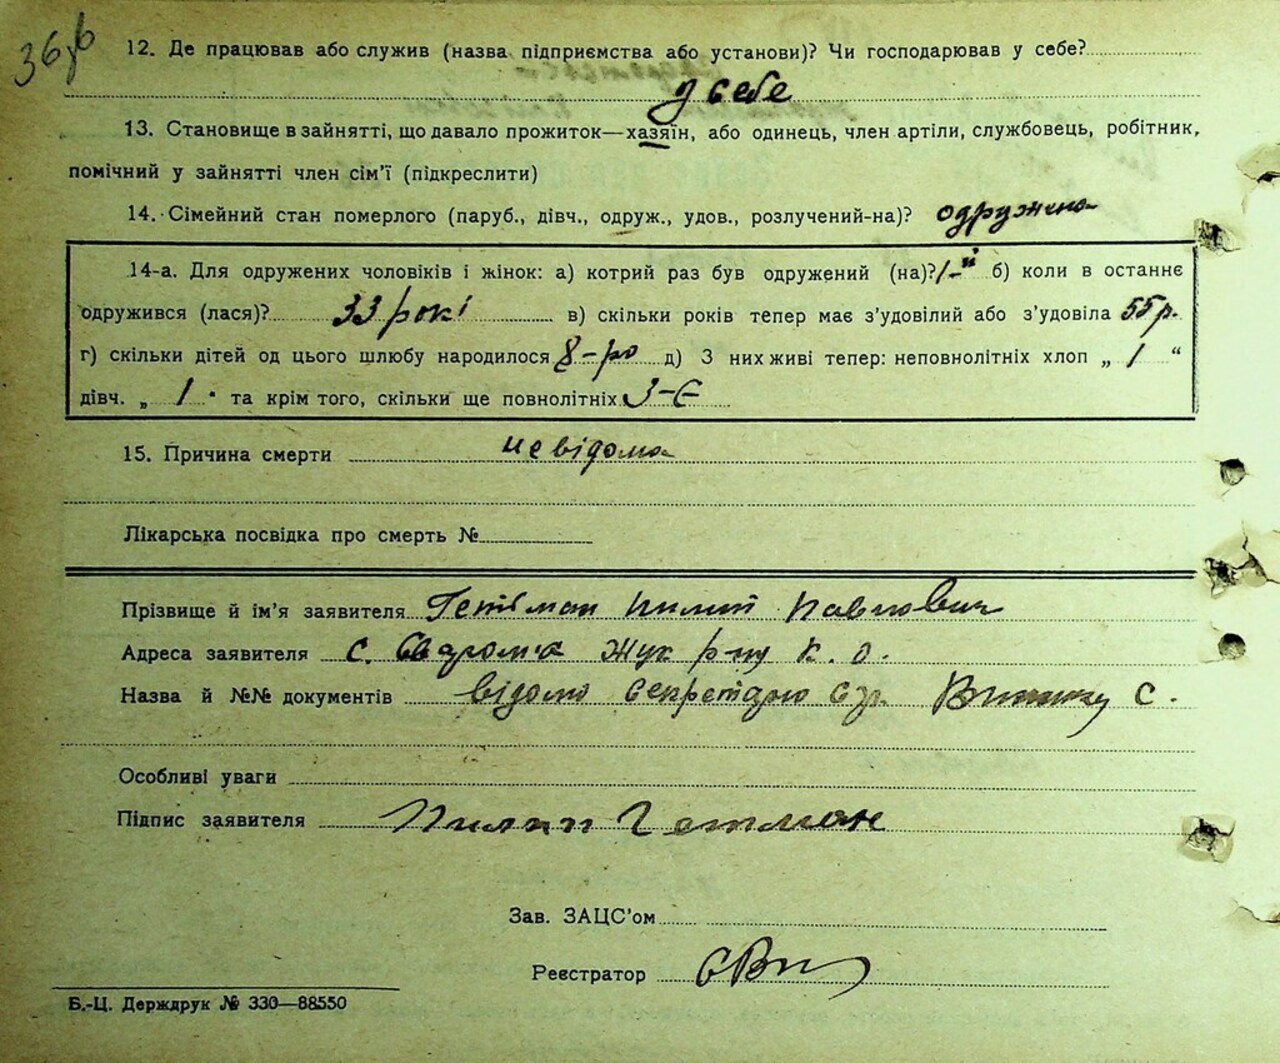 36
12. Де працював або служив (назва підприємства або установи)? Чи господарював у себе?
у себе
13. Становище в зайнятті, що давало прожиток—хазяїн, або одинець, член артіли, службовець, робітник,
помічний у зайнятті член сім'ї (підкреслити)
14. Сімейний стан померлого (паруб., дівч., одруж., удов., розлучений-на)? одружена
14-а. Для одружених чоловіків і жінок: а) котрий раз був одружений (на)? 1-й б) коли в останнє
одружився (лася)? 33 рокі в) скільки років тепер має з'удовілий або з'удовіла 55 р.
г) скільки дітей од цього шлюбу народилося 8-ро д) З них живі тепер: неповнолітніх хлоп „ 1 “
дівч. „ 1 " та крім того, скільки ще повнолітніх 3-є
15. Причина смерти невідома
Лікарська посвідка про смерть №
Прізвище й ім'я заявителя Гетьман Пилип Павлович
Адреса заявителя с. Жук р-ну К. О.
Назва й №№ документів відомо секретарю с/р. С.
Особливі уваги
Підпис заявителя Пилип Гетман
Зав. ЗАЦС'ом
Реєстратор
Б.-Ц. Держдрук № 330—88550